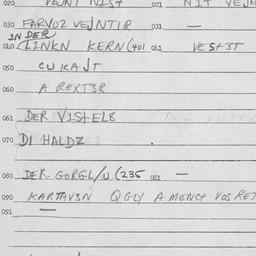 020 VEJNT NIST 021 NIT VEJN
030 FARVOZ VEJNTIR 031 —
IN DER
040 LINKN KERN (401 041 VEST3T
050 CUKAJT
060 A REXT3R
061 DER VIST ELS
070 DI HALDZ
080 DER GORGL/U (235 081 —
090 KARTAVSN Q GLY A MENCH VOS RET
091 —